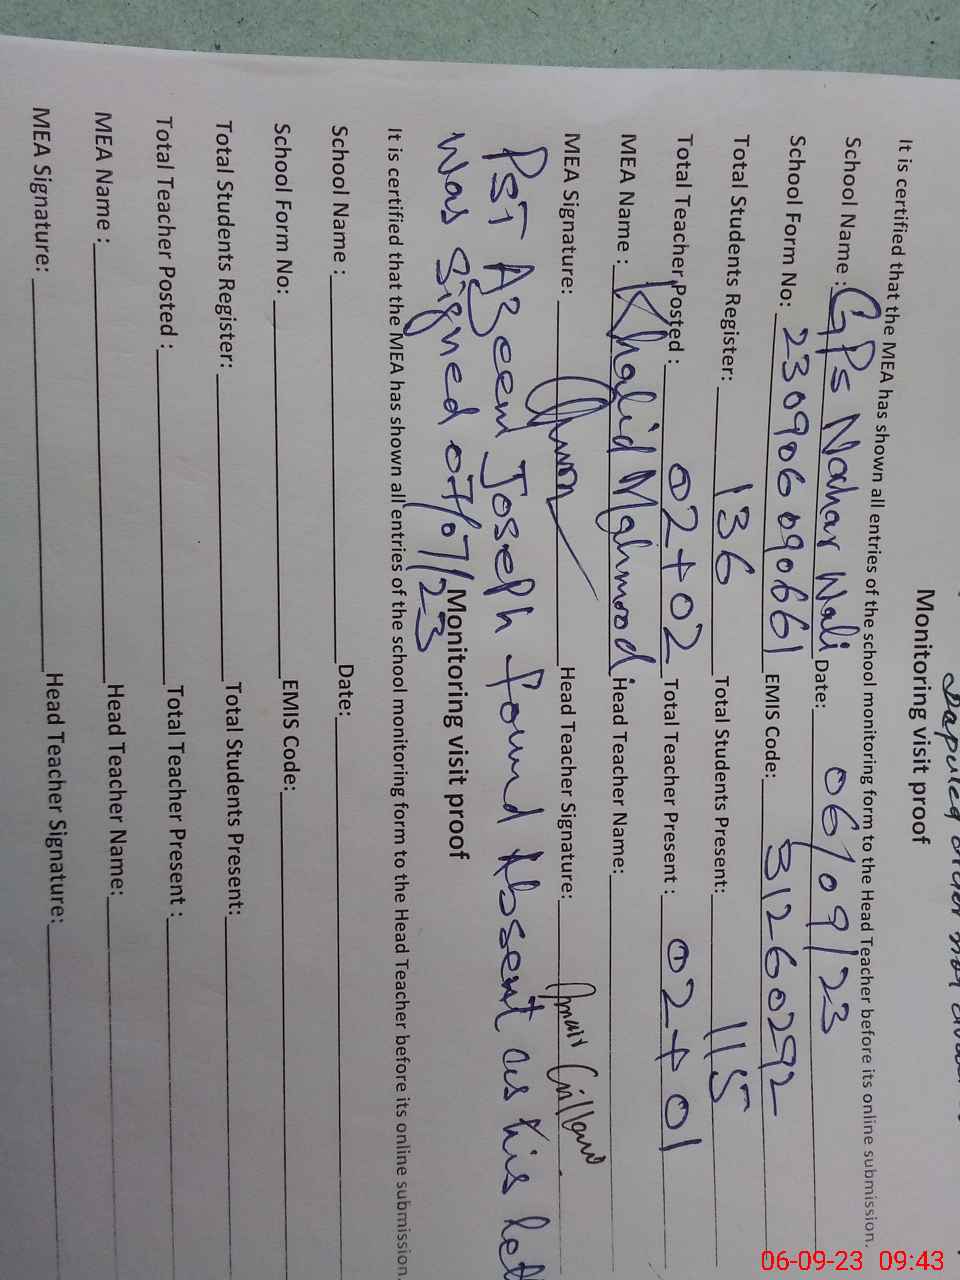 Monitoring visit proof
It is certified that the MEA has shown all entries of the school monitoring form to the Head Teacher before its online submission.
School Name : GPS Nahar Wali Date: 06/09/23
School Form No: 230906090661 EMIS Code: 31260292
Total Students Register: 136 Total Students Present: 115
Total Teacher Posted : 02+02 Total Teacher Present : 02+01
MEA Name : Khalid Mahmood Head Teacher Name:
MEA Signature: Head Teacher Signature:
PST Azeem Joseph found Absent as his
was signed 07/07/23
Monitoring visit proof
It is certified that the MEA has shown all entries of the school monitoring form to the Head Teacher before its online submission.
School Name : Date:
School Form No: EMIS Code:
Total Students Register: Total Students Present:
Total Teacher Posted : Total Teacher Present :
MEA Name : Head Teacher Name:
MEA Signature: Head Teacher Signature:
06-09-23 09:43